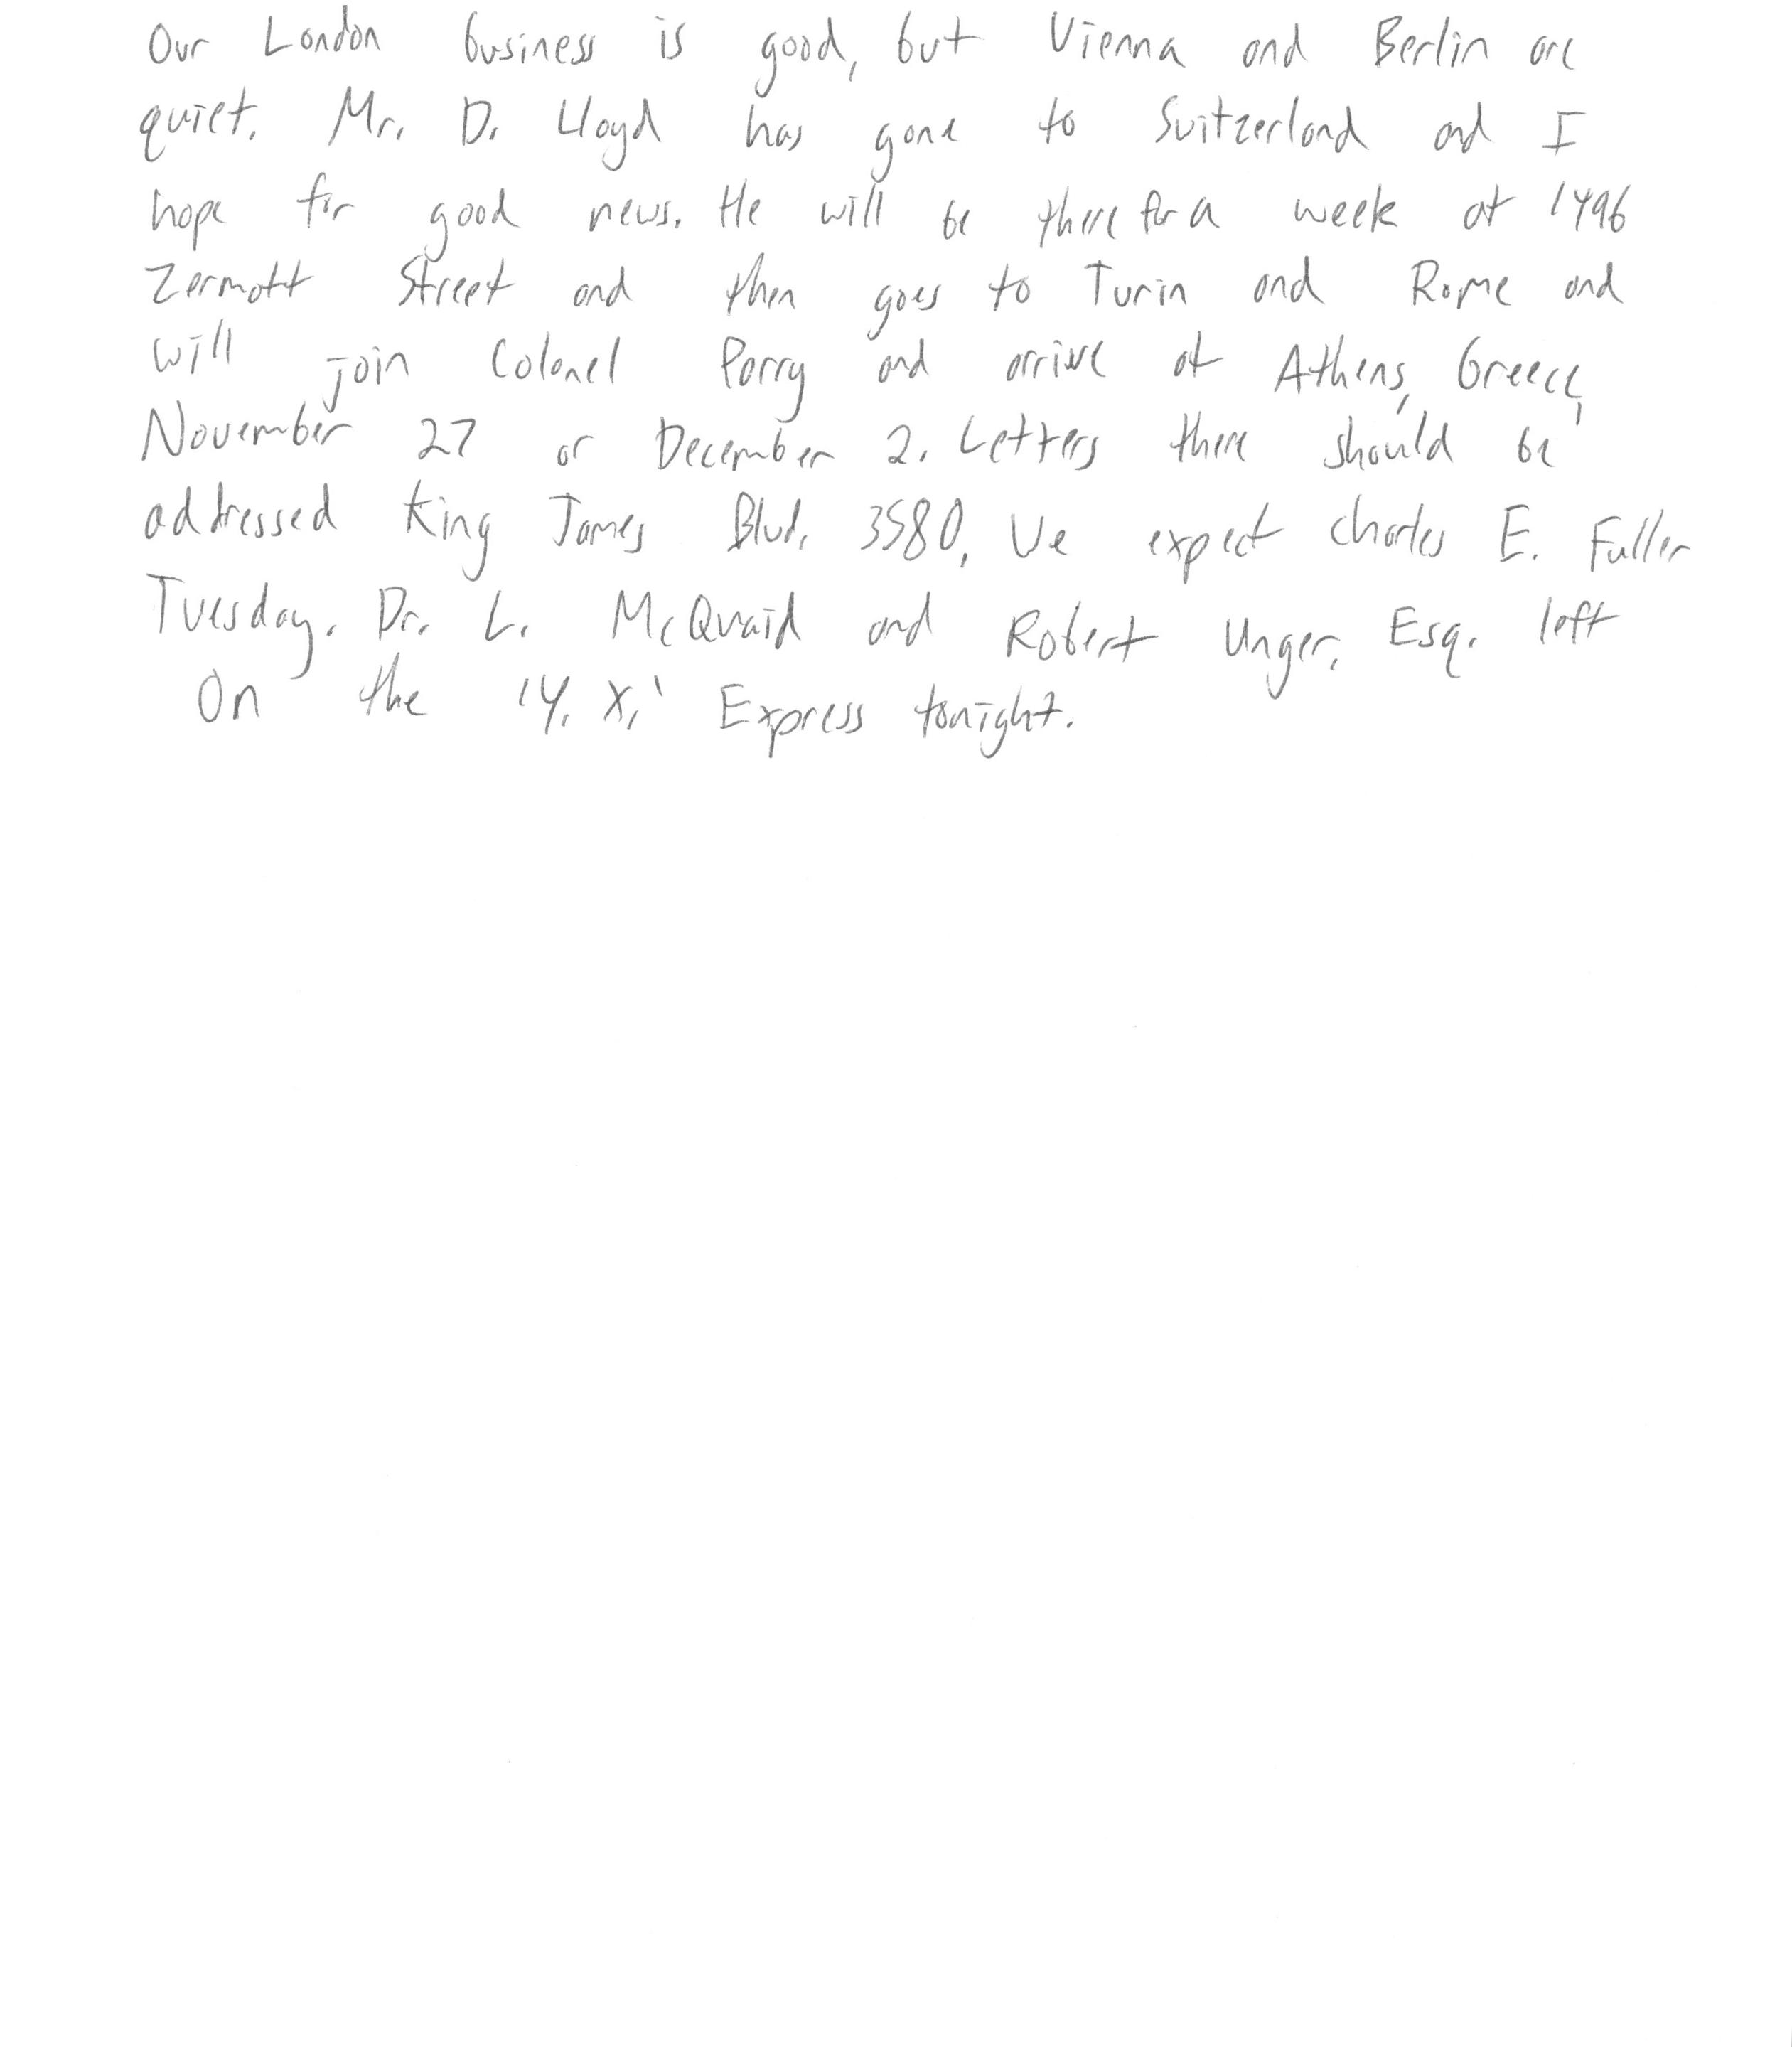 Our London business is good, but Vienna and Berlin are
quiet. Mr. D. Lloyd has gone to Switzerland and I
hope for good news. He will be there for a week at 1496
Zermott Street and then goes to Turin and Rome and
will join Colonel Parry and arrive at Athens, Greece,
November 27 or December 2. Letters there should be
addressed King James Blvd. 3580. We expect Charles E. Fuller
Tuesday. Dr. L. McQuaid and Robert Unger, Esq. left
On the 'Y. X.' Express tonight.